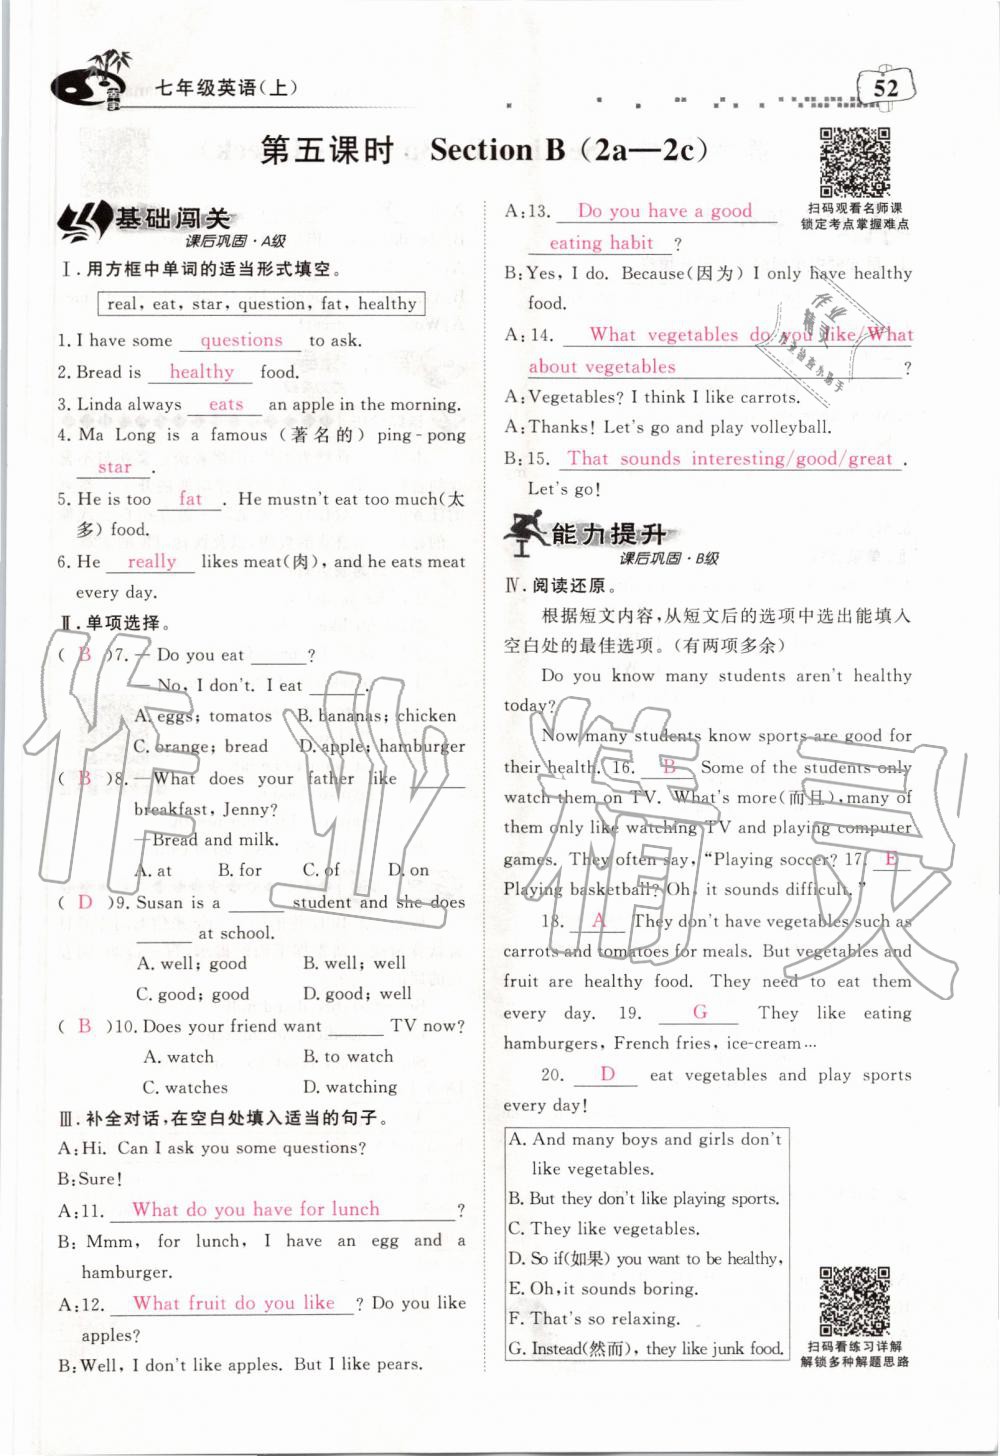 七年级英语(上)
52
第五课时 Section B (2a—2c)
基础闯关
课后巩固·A级
Ⅰ.用方框中单词的适当形式填空。
real, eat, star, question, fat, healthy
1. I have some questions to ask.
2. Bread is healthy food.
3. Linda always eats an apple in the morning.
4. Ma Long is a famous (著名的) ping-pong
star .
5. He is too fat . He mustn't eat too much(太
多) food.
6. He really likes meat(肉), and he eats meat
every day.
Ⅱ.单项选择。
( B )7. — Do you eat ______?
— No, I don't. I eat ______.
A. eggs; tomatos B. bananas; chicken
C. orange; bread D. apple; hamburger
( B )8. —What does your father like ______
breakfast, Jenny?
—Bread and milk.
A. at B. for C. of D. on
( D )9. Susan is a ______ student and she does
______ at school.
A. well; good B. well; well
C. good; good D. good; well
( B )10. Does your friend want ______ TV now?
A. watch B. to watch
C. watches D. watching
Ⅲ.补全对话,在空白处填入适当的句子。
A: Hi. Can I ask you some questions?
B: Sure!
A: 11. What do you have for lunch ?
B: Mmm, for lunch, I have an egg and a
hamburger.
A: 12. What fruit do you like ? Do you like
apples?
B: Well, I don't like apples. But I like pears.
A: 13. Do you have a good
eating habit ?
B: Yes, I do. Because(因为) I only have healthy
food.
A: 14. What vegetables do you like/What
about vegetables ?
A: Vegetables? I think I like carrots.
A: Thanks! Let's go and play volleyball.
B: 15. That sounds interesting/good/great .
Let's go!
扫码观看名师课
锁定考点掌握难点
能力提升
课后巩固·B级
Ⅳ.阅读还原。
根据短文内容,从短文后的选项中选出能填入
空白处的最佳选项。(有两项多余)
Do you know many students aren't healthy
today?
Now many students know sports are good for
their health. 16. B Some of the students only
watch them on TV. What's more(而且), many of
them only like watching TV and playing computer
games. They often say, "Playing soccer? 17. E
Playing basketball? Oh, it sounds difficult."
18. A They don't have vegetables such as
carrots and tomatoes for meals. But vegetables and
fruit are healthy food. They need to eat them
every day. 19. G They like eating
hamburgers, French fries, ice-cream…
20. D eat vegetables and play sports
every day!
A. And many boys and girls don't
like vegetables.
B. But they don't like playing sports.
C. They like vegetables.
D. So if(如果) you want to be healthy,
E. Oh, it sounds boring.
F. That's so relaxing.
G. Instead(然而), they like junk food.
扫码看练习详解
解锁多种解题思路
作业精灵